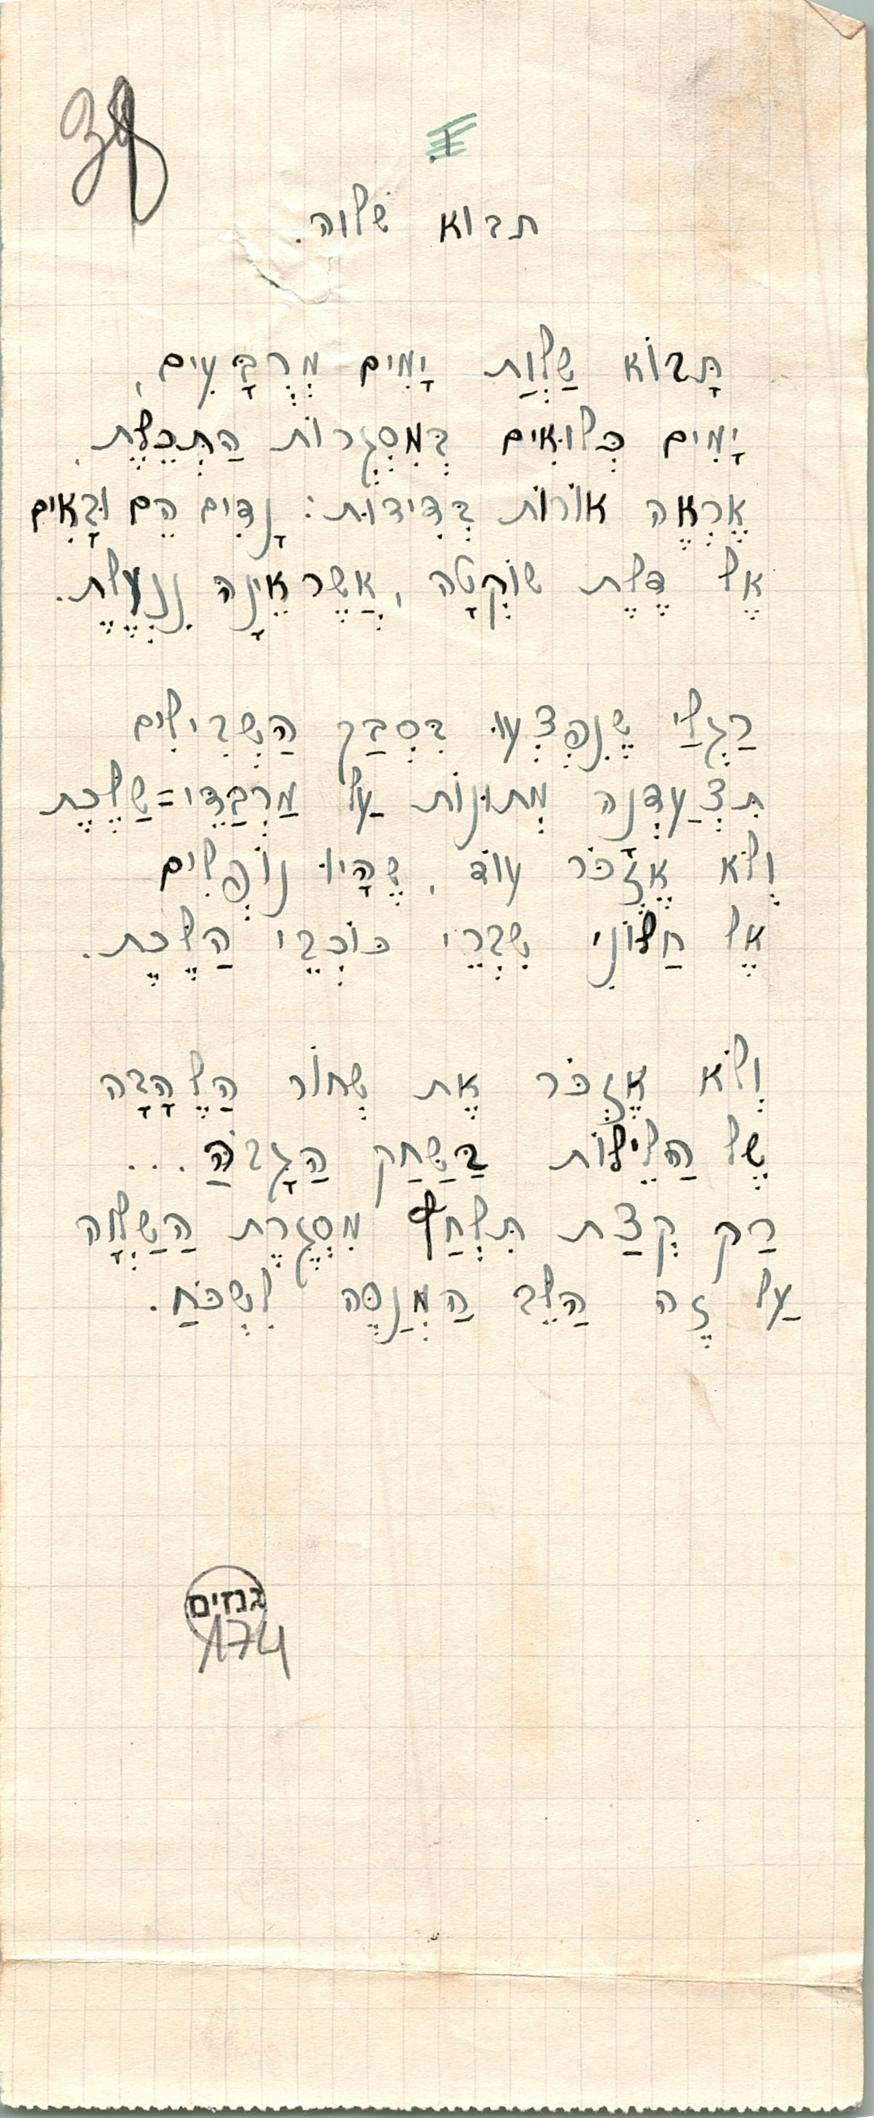 38
I
תבוא שלוה.
תָּבוֹא שַׁלְוַת יָמִים מְרֻבָּעִים,
יָמִים כְּלוּאִים בְּמִסְגְּרוֹת הַתְּכֵלֶת.
אֶרְאֶה אוֹרוֹת בְּדִידוּת: נָדִים הֵם וּבָאִים
אֶל דֶּלֶת שׁוֹקְטָה, אֲשֶׁר אֵינָהּ נִנְעֶלֶת.
רַגְלַי שֶׁנִּפְצְעוּ בִּסְבַךְ הַשְּׁבִילִים
תִּצְעַדְנָה מְתוּנוֹת עַל מַרְבַדֵּי=שַׁלֶּכֶת
וְלֹא אֶזְכֹּר עוֹד, שֶׁהָיוּ נוֹפְלִים
אֶל חַלּוֹנִי שִׁבְרֵי כּוֹכְבֵי הַלֶּכֶת.
וְלֹא אֶזְכֹּר אֶת שְׁחוֹר הַלֶּהָבָה
שֶׁל הַלֵּילוֹת בַּשַּׁחַק הַגָּבוֹהַּ...
רַק קְצָת תִּלְחַץ מִסְגֶּרֶת הַשַּׁלְוָה
עַל זֶה הַלֵּב הַמְנַסֶּה לִשְׁכֹּחַ.
גנזים
174